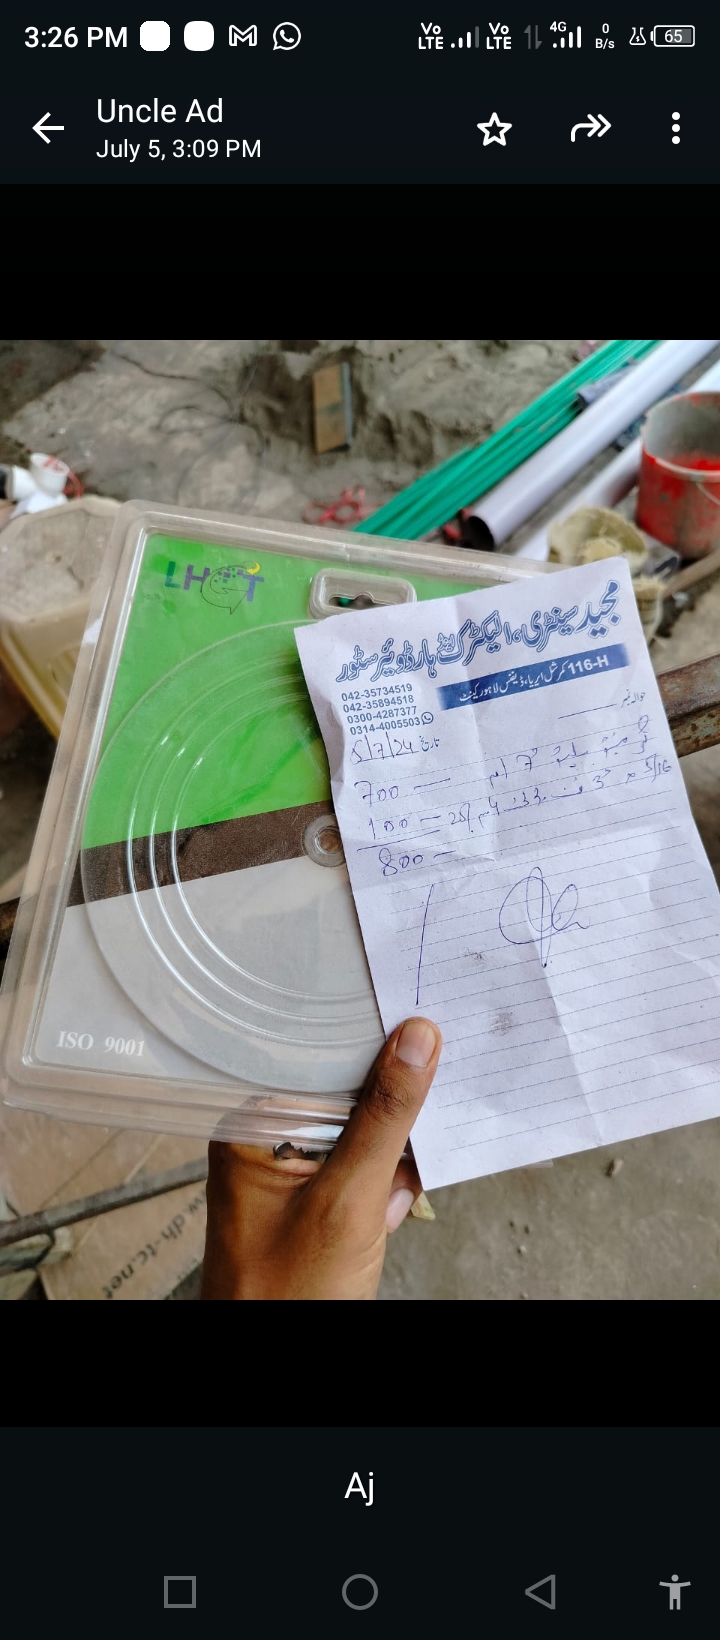 3:26 PM
Vo LTE Vo LTE 4G 0 B/s 65
Uncle Ad
July 5, 3:09 PM
LHOT
مجید سینٹری، الیکٹرک اینڈ ہارڈویئر سٹور
116-H کمرشل ایریا، ڈیفنس لاہور کینٹ
042-35734519
042-35894518
0300-4287377
0314-4005503
حوالہ نمبر
تاریخ 5/7/24
700 —
5/16
100 —
800 —
ISO 9001
www.dh-tc.net
Aj